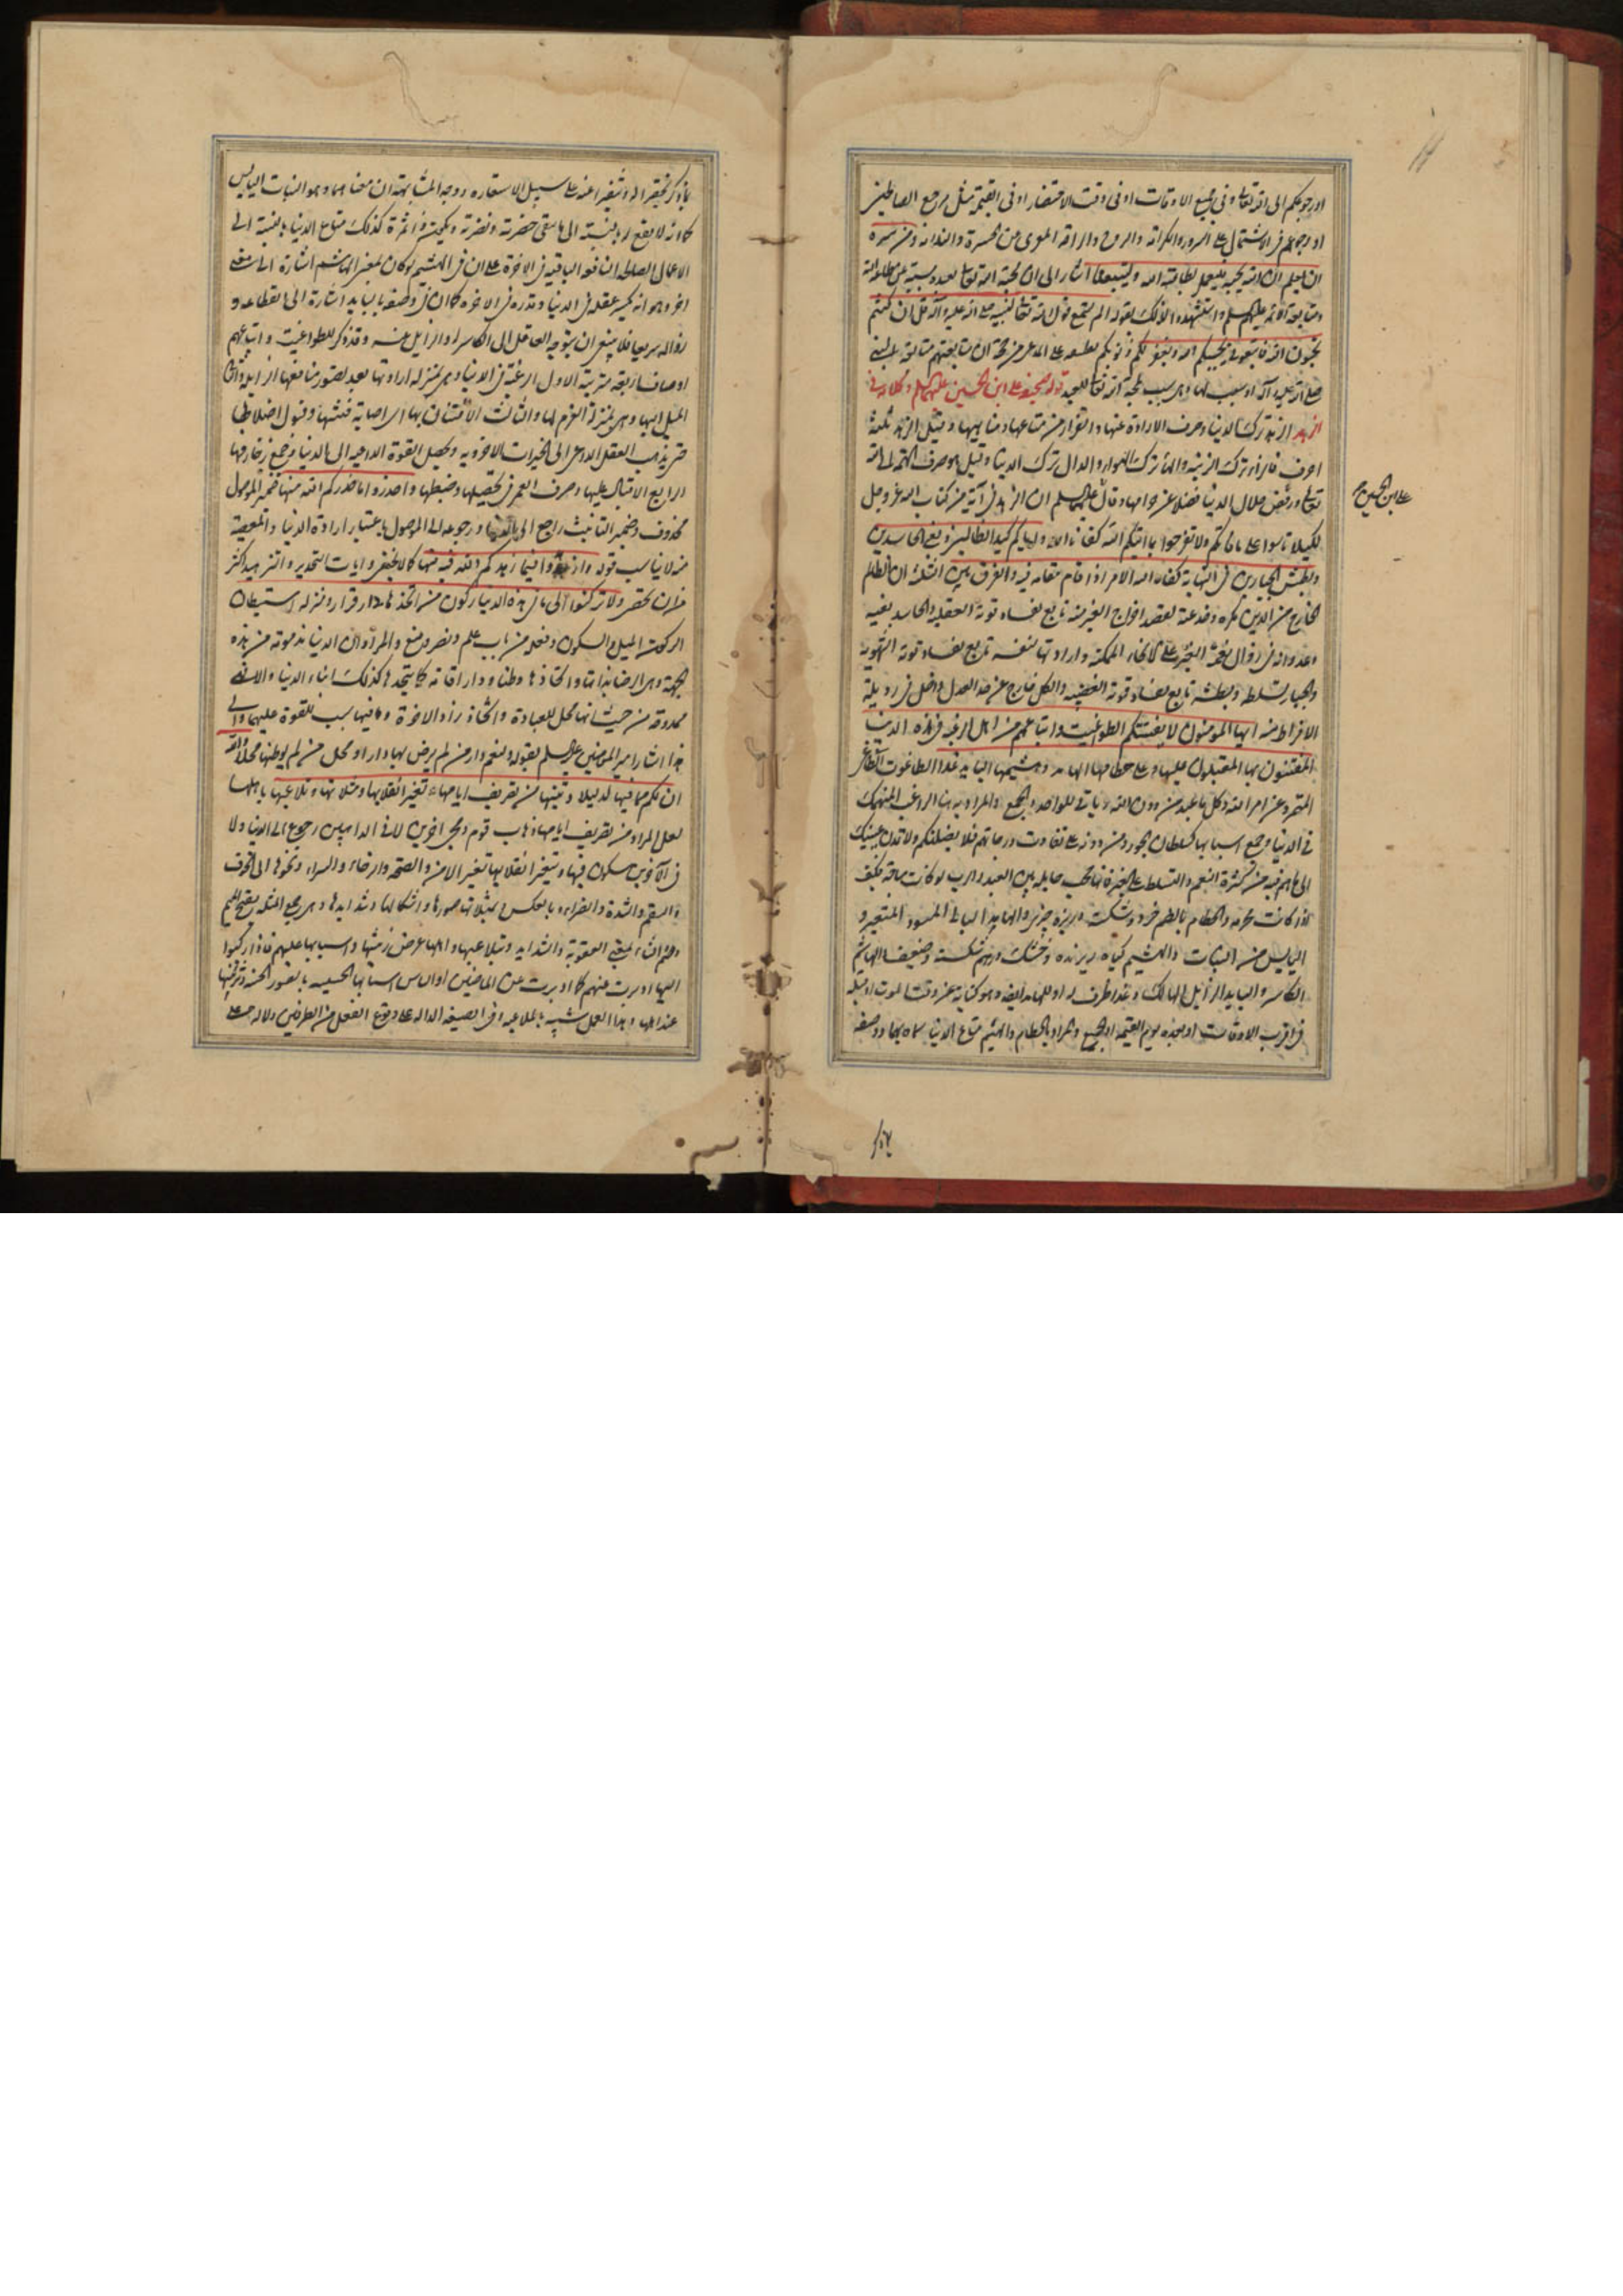 او رجوعكم الى الله تعالى فى جميع الاوقات او فى وقت الاحتضار او فى القيمة مثل مرجع الصالحين
او رجوعهم فى الاشتمال على السرور والكرامة والروح والراحة من الحسرة والندامة ومن سره
ان يعلم ان الله يحبه فليعمل بطاعة الله وليتبعنا اشار الى ان محبة الله تعالى لعبده
ومتابعة الائمة عليهم السلم واستشهد لذلك بقوله الم يسمع قول الله تعالى لنبيه صلى الله عليه وآله قل ان كنتم
تحبون الله فاتبعونى يحببكم الله ويغفر لكم ذنوبكم
صلى الله عليه وآله سبب لها وهى سبب لمحبة الله تعالى للعبد قوله صحيفة على ابن الحسين عليهما السلم وكلامه فى
الزهد الزهد ترك الدنيا وصرف الارادة عنها والفرار من متاعها ومناهيها وقيل الزهد ثلثة
احرف فالزاء ترك الزينة والهاء ترك الهواء والدال ترك الدنيا وقيل هو صرف الهمة الى الله
تعالى ورفض حلال الدنيا فضلا عن حرامها وقال عليه السلم ان الزهد فى آية من كتاب الله عز وجل
لكيلا تاسوا على ما فاتكم ولا تفرحوا بما آتيكم الله كفانا الله واياكم كيد الظالمين وبغى الحاسدين
وبطش الجبارين فى النهاية كفاه الله الامر اذا قام مقامه فيه والفرق بين الثلثة ان الظالم
الخارج من الدين بكره وخدعة يقصد اخراج الغير منه تابع لفساد قوته العقلية والحاسد بغيه
وعدوانه فى زوال نعمة الغير على الانحاء الممكنة وارادتها لنفسه تابع لفساد قوته الشهوية
والجبار تسلطه وبطشه تابع لفساد قوته الغضبية والكل خارج عن حد العدل داخل فى رذيلة
الافراط منه ايها المومنون لا يفتننكم الطواغيت واتباعهم من اهل الرغبة فى هذه الدنيا
المفتنون بها المقبلون عليها وعلى حطامها الهامد وهشيمها البايد غدا الطاغوت الطاغى
المتمرد عن امر الله وكل ما عبد من دون الله وياتى للواحد والجمع والمراد به هنا الراغب المنهمك
فى الدنيا وجمع اسبابها كسلطان الجور ومن دونه على تفاوت درجاتهم فلا يضلنكم ولا تمدن عينيك
الى ما هم فيه من كثرة النعم والتسلط على الخلق فانها حجب حايله بين العبد والرب لو كانت مباحة فكيف
اذا كانت محرمة والحطام بالضم خرد وشكسته وريزه چيزى والهامد البالى المسود المتغير و
اليابس من النبات والهشيم كياه ريزنده وخشك ودرهم شكسته وضعيف الهاشم
الكاسر والبايد الزايل الهالك وغدا ظرف له او للهامد ايضا وهو كناية عن وقت الموت او قبله
فى اقرب الاوقات او بعده يوم القيمة او الجميع والمراد بالحطام والهشيم متاع الدنيا سماه بهما ووصفه
على ابن الحسين ع
بما ذكر تحقيرا له وتنفيرا عنه على سبيل الاستعارة ووجه المشابهة ان معناهما وهو النبات اليابس
كما انه لا نفع له بالنسبة الى ما بقى خضرته ونضرته ثمرة كذلك متاع الدنيا بالنسبة الى
الاعمال الصالحة النافعة الباقية فى الاخرة على ان فى الهشيم لو كان بمعنى الهاشم اشارة الى معنى
اخر وهو انه يكسر عقله فى الدنيا وقدره فى الاخرة كما ان فى وصفه بالبايد اشارة الى انقطاعه و
زواله سريعا فلا ينبغى ان يتوجه العاقل الى الكاسر له والزايل عنه وقد ذكر للطواغيت واتباعهم
اوصافا اربعة مترتبة الاول الرغبة فى الدنيا وهى بمنزلة ارادتها بعد تصور منافعها الزايدة والثانى
الميل اليها وهى بمنزلة العزم لها والثالث الافتتان بها اى اصابة فتنتها وقبول اضلالها
حتى يذهب العقل الداعى الى الخيرات الاخروية ويحصل القوة الداعية الى الدنيا وجمع زخارفها
الرابع الاقبال عليها وصرف العمر فى تحصيلها وضبطها واحذروا ما حذركم الله منها ضمير الموصول
محذوف وضمير التانيث راجع الى الدنيا ورجوعه الى الموصول باعتبار ارادة الدنيا والمعصية
منه لا يناسب قوله وازهدوا فيما زهدكم الله فيه منها كما لا يخفى وايات التحذير والتزهيد اكثر
من ان تحصى ولا تركنوا الى ما فى هذه الدنيا ركون من اتخذها دار قرار ومنزل استيطان
الركون الميل والسكون وفعله من باب علم ونصر ومنع والمراد ان الدنيا مذمومة من هذه
الجهة وهى الرضا بذاتها واتخاذها وطنا ودار اقامة كما يتخذها كذلك ابناء الدنيا والا فهى
ممدوحة من حيث انها محل للعبادة واتخاذ زاد الاخرة وما فيها سبب للقوة عليهما والى
هذا اشار امير المومنين عليه السلم بقوله ولنعم دار من لم يرض بها دارا ومحل من لم يوطنها محلا والله
ان لكم مما فيها لدليلا وتنبيها من تصريف ايامها وتغير انقلابها ومثلاتها وتلاعبها باهلها
لعل المراد من تصريف ايامها ذهاب قوم ومجى اخرين لا فى الذاهبين رجوع الى الدنيا ولا
فى الآخرين سكون فيها وبتغير انقلابها تغير الامن والصحة والرخاء والسراء ونحوها الى الخوف
والسقم والشدة والضراء وبالعكس وبمثلاتها صورها واشكالها وشدايدها وهى جمع المثلة بفتح الميم
وضم الثاء بمعنى العقوبة والشدايد وبتلاعبها باهلها عرض زينتها واسبابها عليهم فاذا ركنوا
اليها ادبرت عنهم كما ادبرت عن الماضين
عند اهلها وهذا العمل شبيه بالملاعبة وفى الصيغة الدالة على وقوع الفعل من الطرفين دلالة على